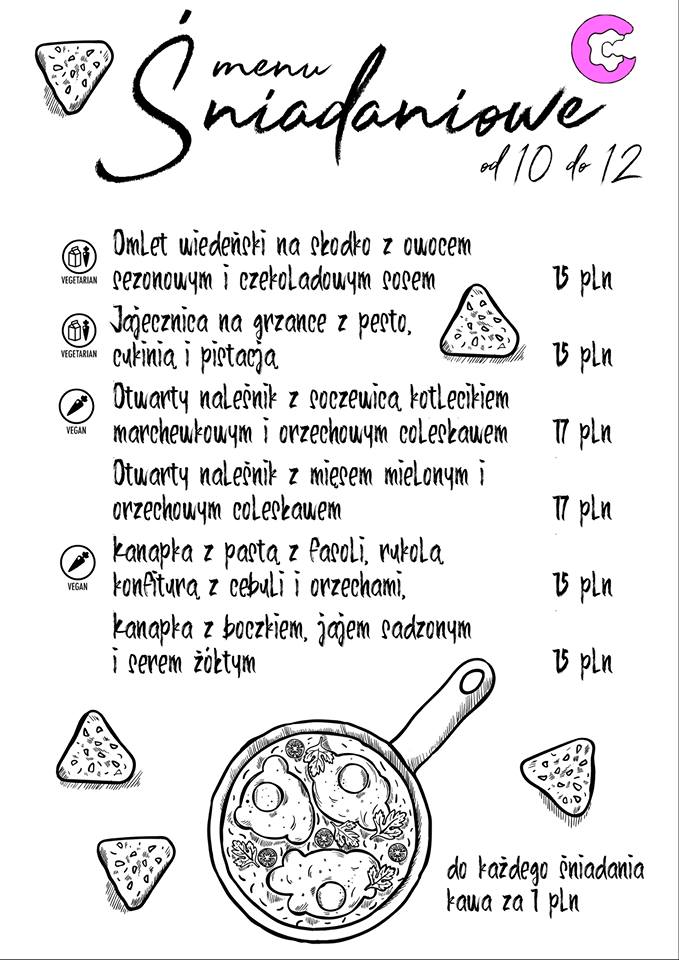 menu
Śniadaniowe
od 10 do 12
VEGETARIAN
Omlet wiedeński na słodko z owocem
sezonowym i czekoladowym sosem 15 pln
VEGETARIAN
Jajecznica na grzance z pesto,
cukinią i pistacją 15 pln
VEGAN
Otwarty naleśnik z soczewicą kotlecikiem
marchewkowym i orzechowym colesławem 17 pln
Otwarty naleśnik z mięsem mielonym i
orzechowym colesławem 17 pln
VEGAN
kanapka z pastą z fasoli, rukolą
konfiturą z cebuli i orzechami, 15 pln
kanapka z boczkiem, jajem sadzonym
i serem żółtym 15 pln
do każdego śniadania
kawa za 1 pln